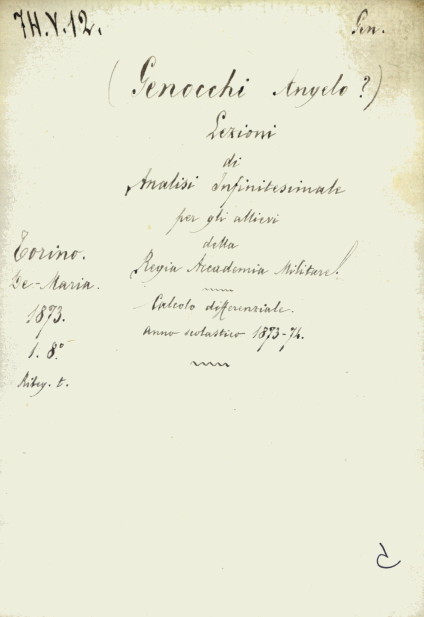 7H.V.12.
Gen.
(Genocchi Angelo?)
Lezioni
di
Analisi Infinitesimale
per gli allievi
della
Regia Accademia Militare.
Calcolo differenziale.
Anno scolastico 1873-74.
Torino.
De-Maria.
1873.
1. 8.°